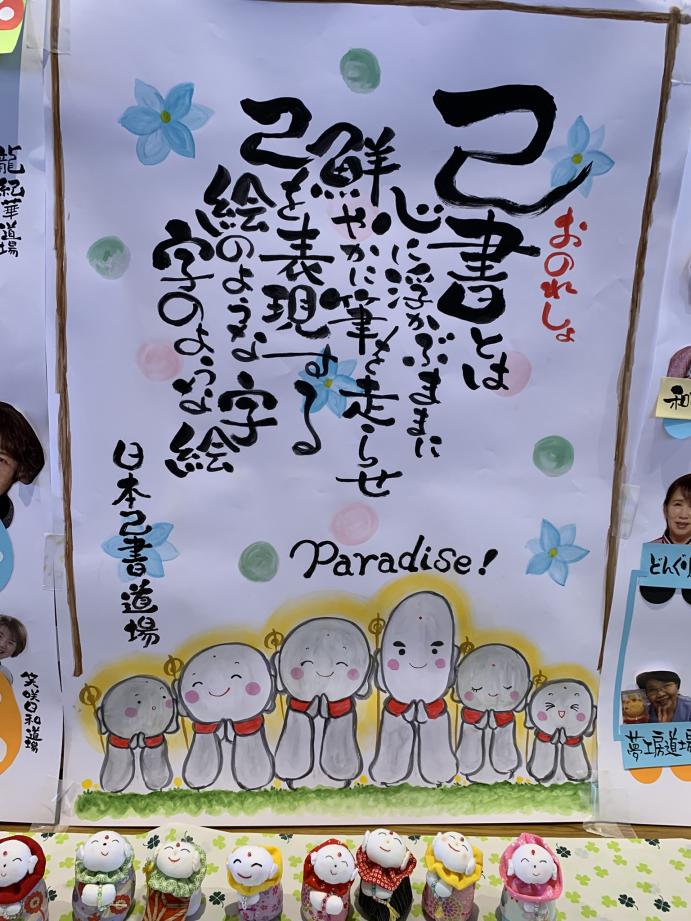 おのれしょ
己書とは
心に浮かぶままに
鮮やかに筆を走らせ
己を表現する
絵のような字
字のような絵
日本己書道場
Paradise!
龍紀華道場
笑咲日和道場
和
どんぐり
夢工房道場